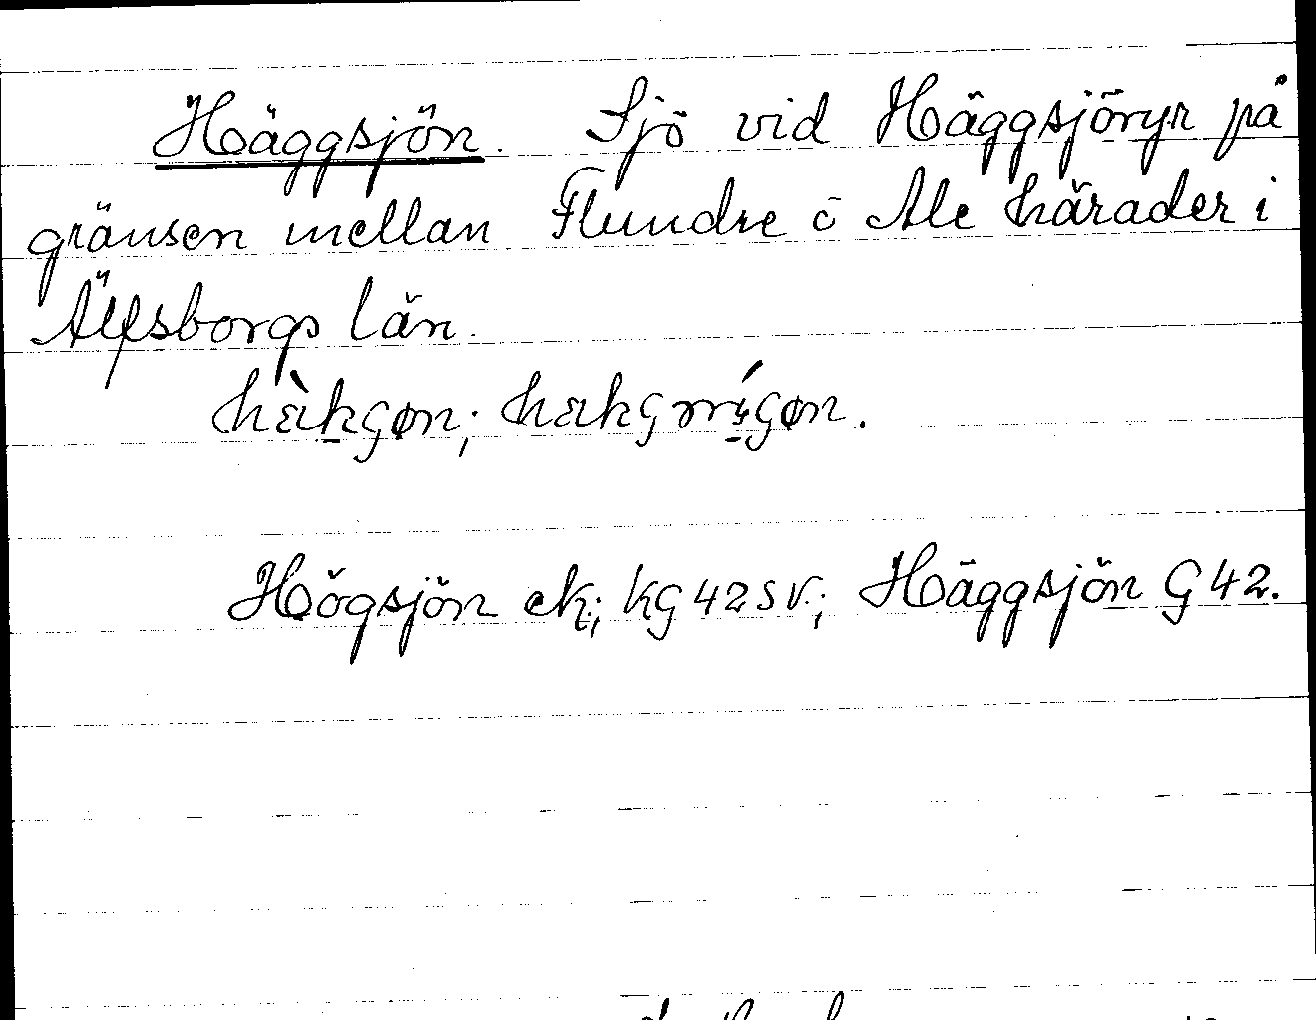 Häggsjön. Sjö vid Häggsjöryr på
gränsen mellan Flundre o Ale härader i
Älfsborgs län.
Högsjön ek; KG 42 SV.; Häggsjön G 42.